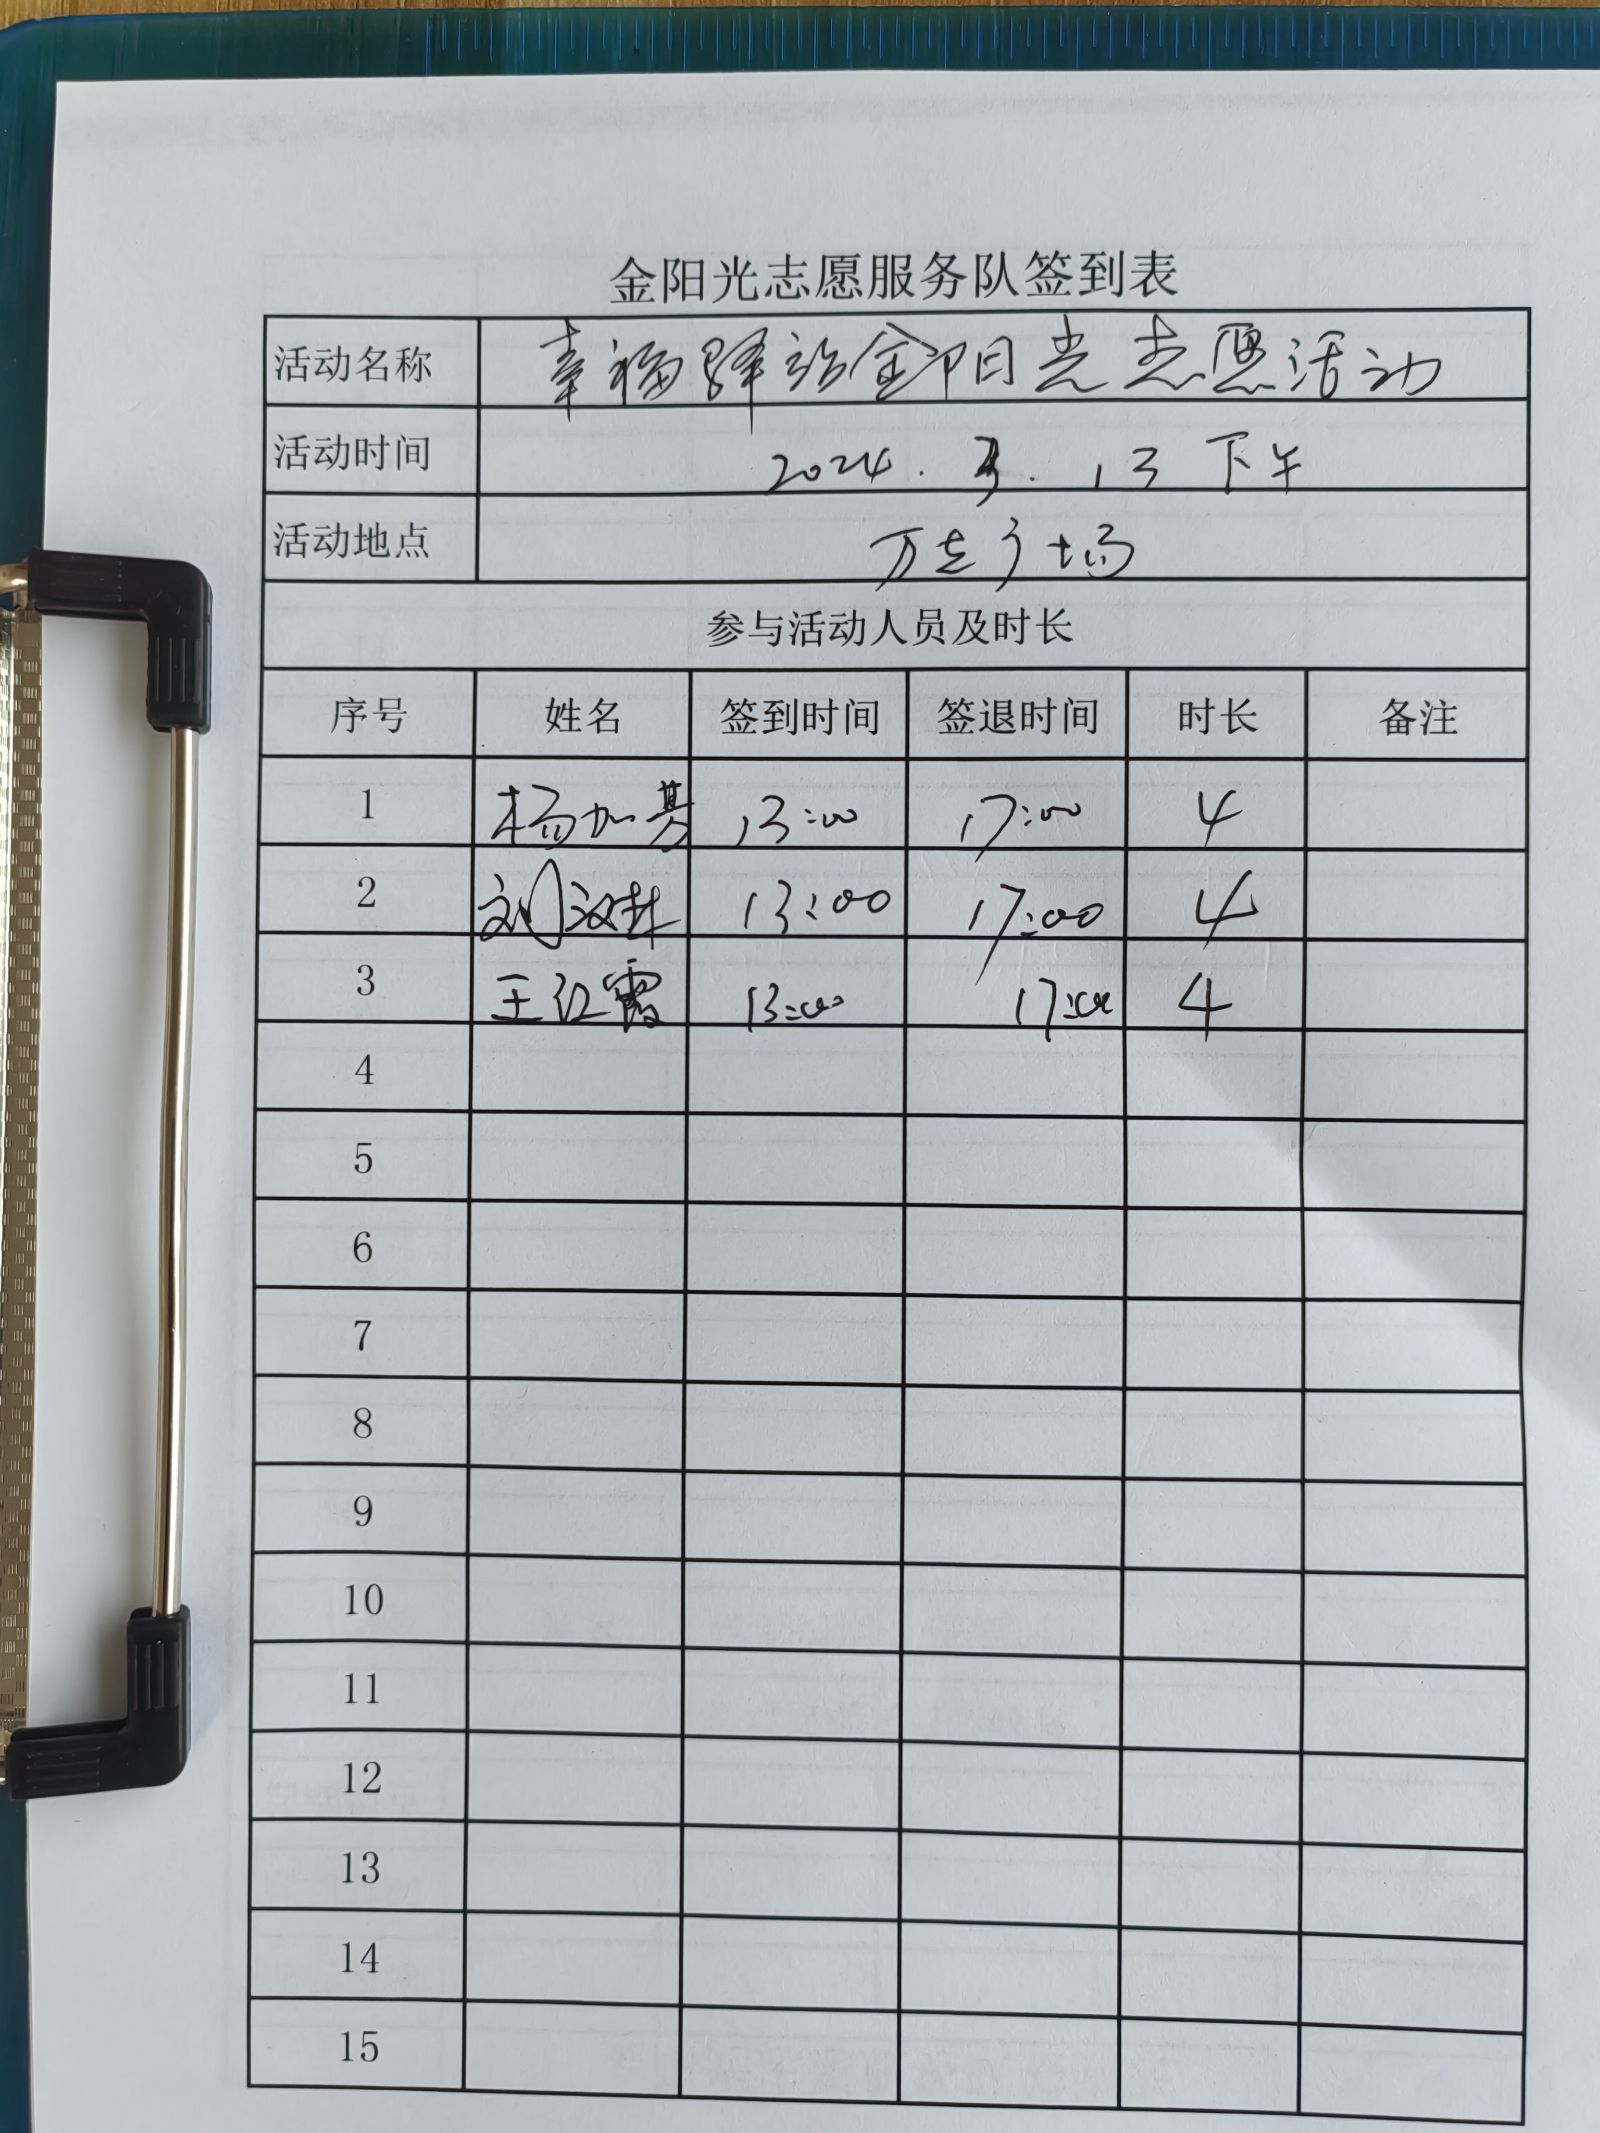 金阳光志愿服务队签到表
活动名称 幸福驿站金阳光志愿活动
活动时间 2024. 3. 13 下午
活动地点 万达广场
参与活动人员及时长
序号 姓名 签到时间 签退时间 时长 备注
1 杨加 13:00 17:00 4
2 刘汉 13:00 17:00 4
3 王红霞 13:00 17:00 4
4
5
6
7
8
9
10
11
12
13
14
15